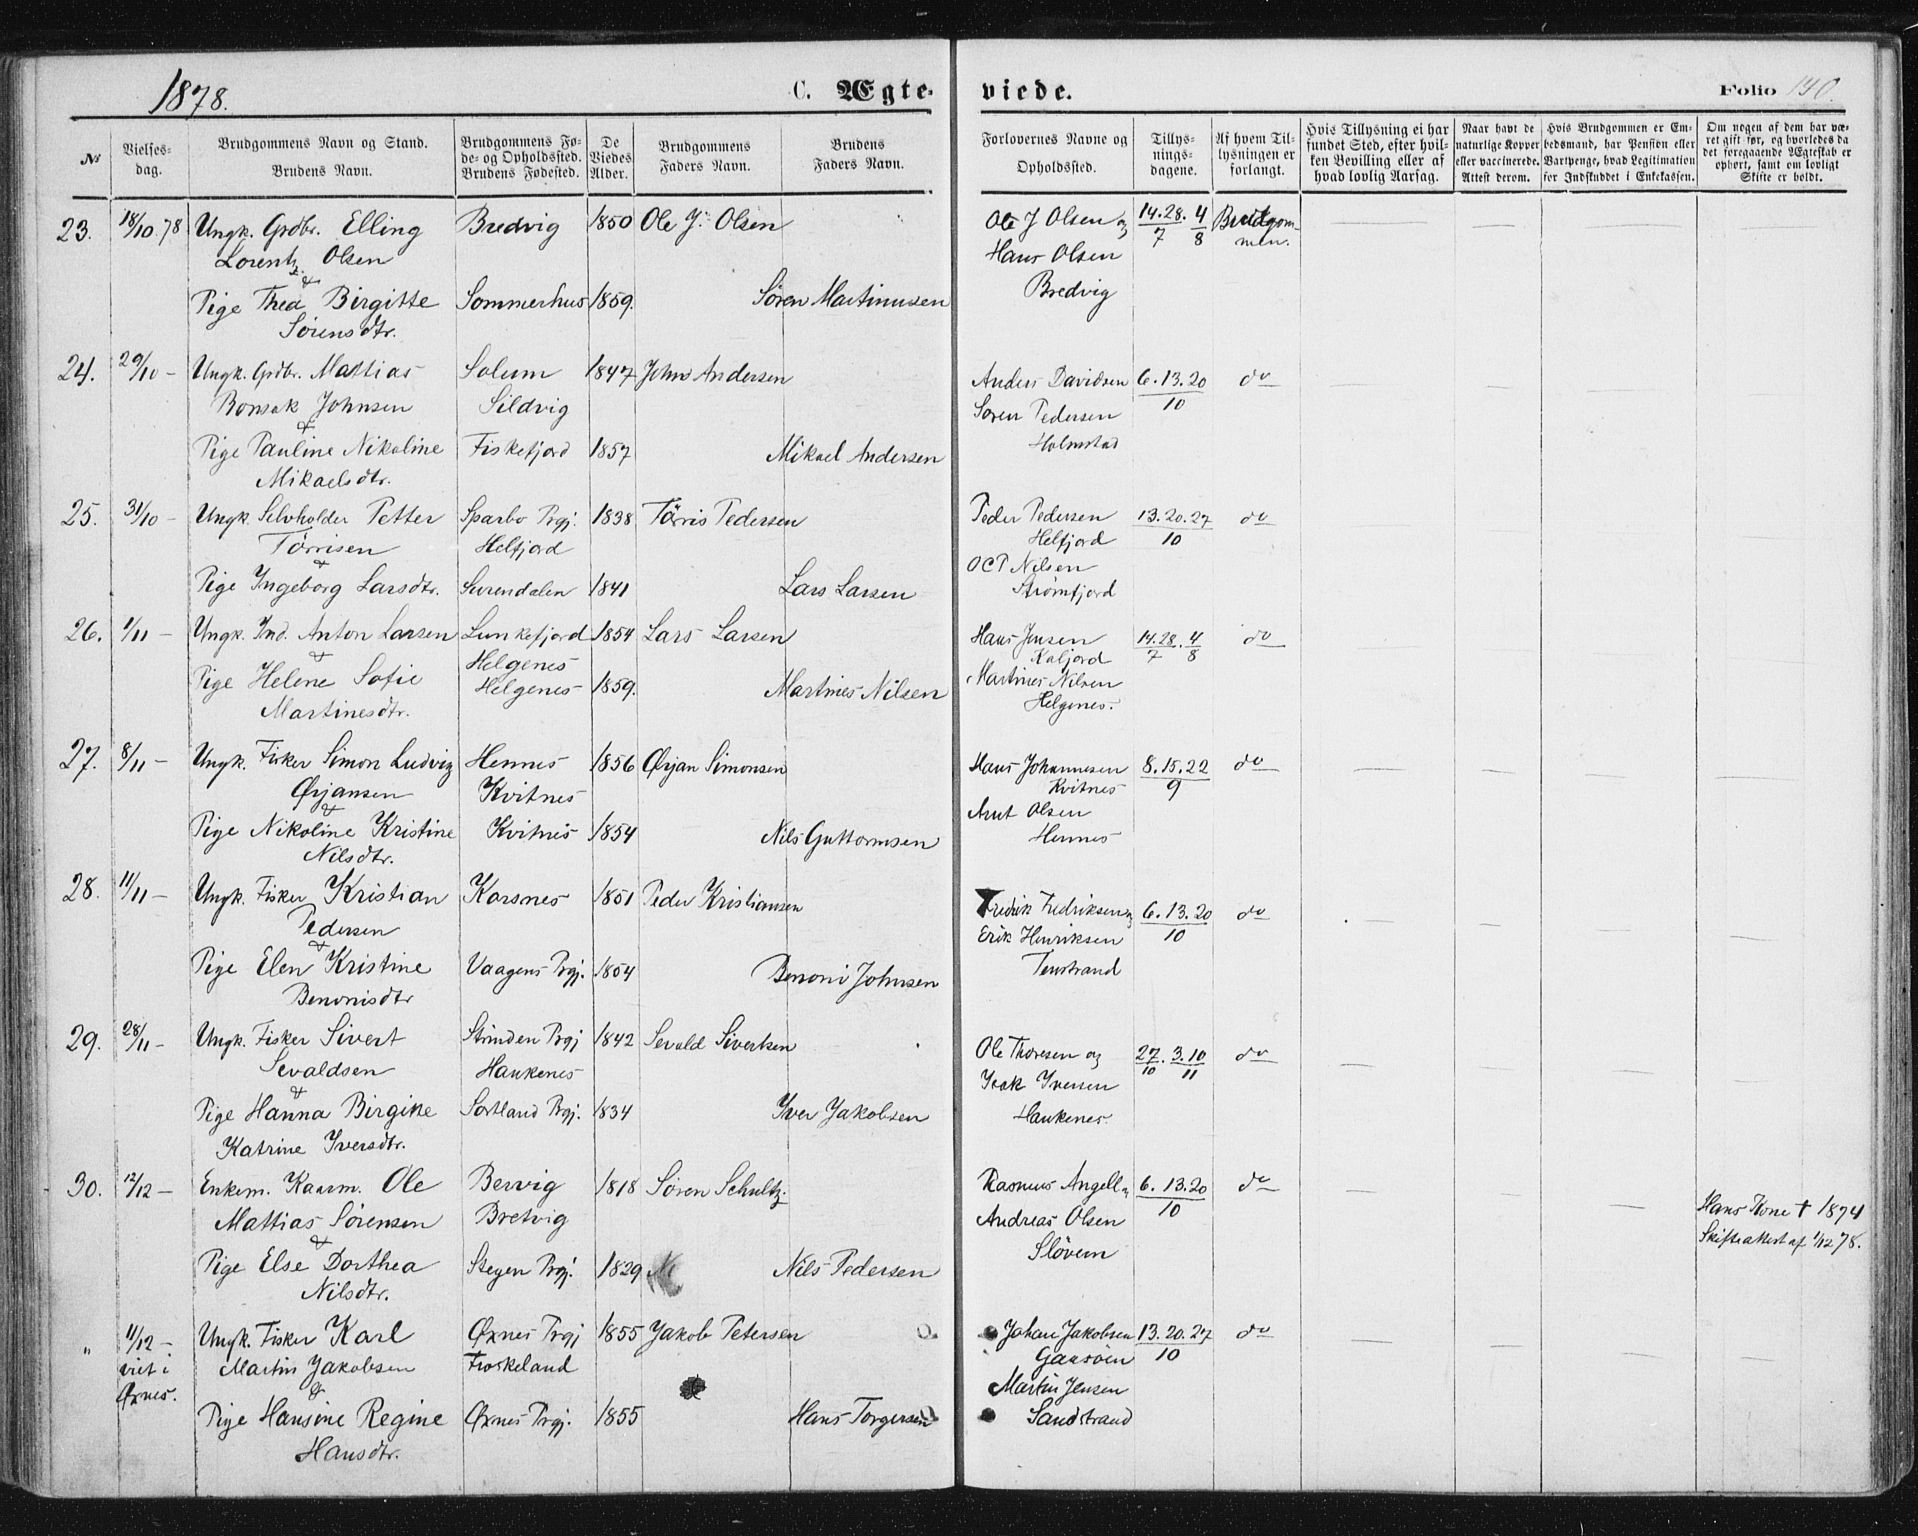 1878.
C. Ægte-
viede.
Folio 140.
No
Vielses-
dag.
Brudgommens Navn og Stand.
Brudens Navn.
Brudgommens Fø-
de- og Opholdssted.
Brudens Fødested.
De
Viedes
Alder.
Brudgommens
Faders Navn.
Brudens
Faders Navn.
Forlovernes Navne og
Opholdssted.
Tillys-
nings-
dagene.
Af hvem Til-
lysningen er
forlangt.
Hvis Tillysning ei har
fundet Sted, efter hvil-
ken Bevilling eller af
hvad lovlig Aarsag.
Naar havt de
naturlige Kopper
eller vaccinerede.
Attest derom.
Hvis Brudgommen er Em-
bedsmand, har Pension eller
Vartpenge, hvad Legitimation
for Indskuddet i Enkekassen.
Om nogen af dem har væ-
ret gift før, og hvorledes da
det foregaaende Ægteskab er
ophørt, samt om lovligt
Skifte er holdt.
23. 18/10 78 Ungk. Grdbr. Elling Bredvig 1850 Ole J. Olsen Ole J Olsen og 14.28/7 . 4/8 Brudgom-
Lorentz Olsen Hans Olsen men.
&
Pige Thea Birgitte Sommerhus 1859. Søren Martinusen Bredvig
Sørensdtr.
24. 29/10 - Ungk. Grdbr. Mattias Solum 1847 John Andersen Anders Davidsen 6.13.20/10 do
Bonsak Johnsen Sildvig Søren Pedersen
& Holmstad
Pige Pauline Nikoline Fiskefjord 1857 Mikael Andersen
Mikaelsdtr.
25. 31/10 - Ungk. Selvholder Petter Sparbo Prgj. 1838 Tørris Pedersen Peder Pedersen 13.20.27/10 do
Tørrisen Helfjord Helfjord
& OCP Nilsen
Pige Ingeborg Larsdtr. Surendalen 1841 Lars Larsen Strømfjord
26. 1/11 - Ungk. Ind. Anton Larsen Lunkefjord 1854 Lars Larsen Hans Jensen 14.28/7 . 4/8 do
& Helgenes Kaljord
Pige Helene Sofie Helgenes 1859. Martines Nilsen Martines Nilsen
Martinesdtr. Helgenes.
27. 8/11 - Ungk. Fisker Simon Ludvig Hennes 1856 Ørjan Simonsen Hans Johannesen 8.15.22/9 do
Ørjansen Kvitnes Kvitnes
& Arnt Olsen
Pige Nikoline Kristine Kvitnes 1854 Nils Guttormsen Hennes
Nilsdtr.
28. 11/11 - Ungk. Fisker Kristian Korsnes 1851 Peder Kristiansen Fredrik Fredriksen og 6.13.20/10 do
Pedersen Erik Henriksen
&
Pige Elen Kristine Vaagens Prgj. 1854 Benoni Johnsen Tenstrand
Benonisdtr
29. 28/11 - Ungk. Fisker Sivert Strinden Prgj 1842 Sevald Sivertsen Ole Thoresen og 27/10 . 3.10/11 do
Sevaldsen Haukenes Isak Iversen
&
Pige Hanna Birgitte Sortland Prgj. 1834 Iver Jakobsen Haukenes.
Katrine Iversdtr.
30. 12/12 - Enkem. Kaarm. Ole Bervig 1818 Søren Schultz. Rasmus Angell og 6.13.20/10 do
Mattias Sørensen Bretvig Andreas Olsen Hans Kone † 1874
& Sløvern Skifteattest af 1/12 78.
Pige Else Dorthea Stegen Prgj. 1829 Nils Pedersen
Nilsdtr.
" 11/12 - Ungk. Fisker Karl Øxnes Prgj 1855 Jakob Petersen Johan Jakobsen 13.20.27/10 do
viet i Martin Jakobsen Froskeland Gaasøen
Øxnes. & Martin Jensen
Pige Hansine Regine Øxnes Prgj. 1855 Hans Torgersen Sandstrand
Hansdtr.